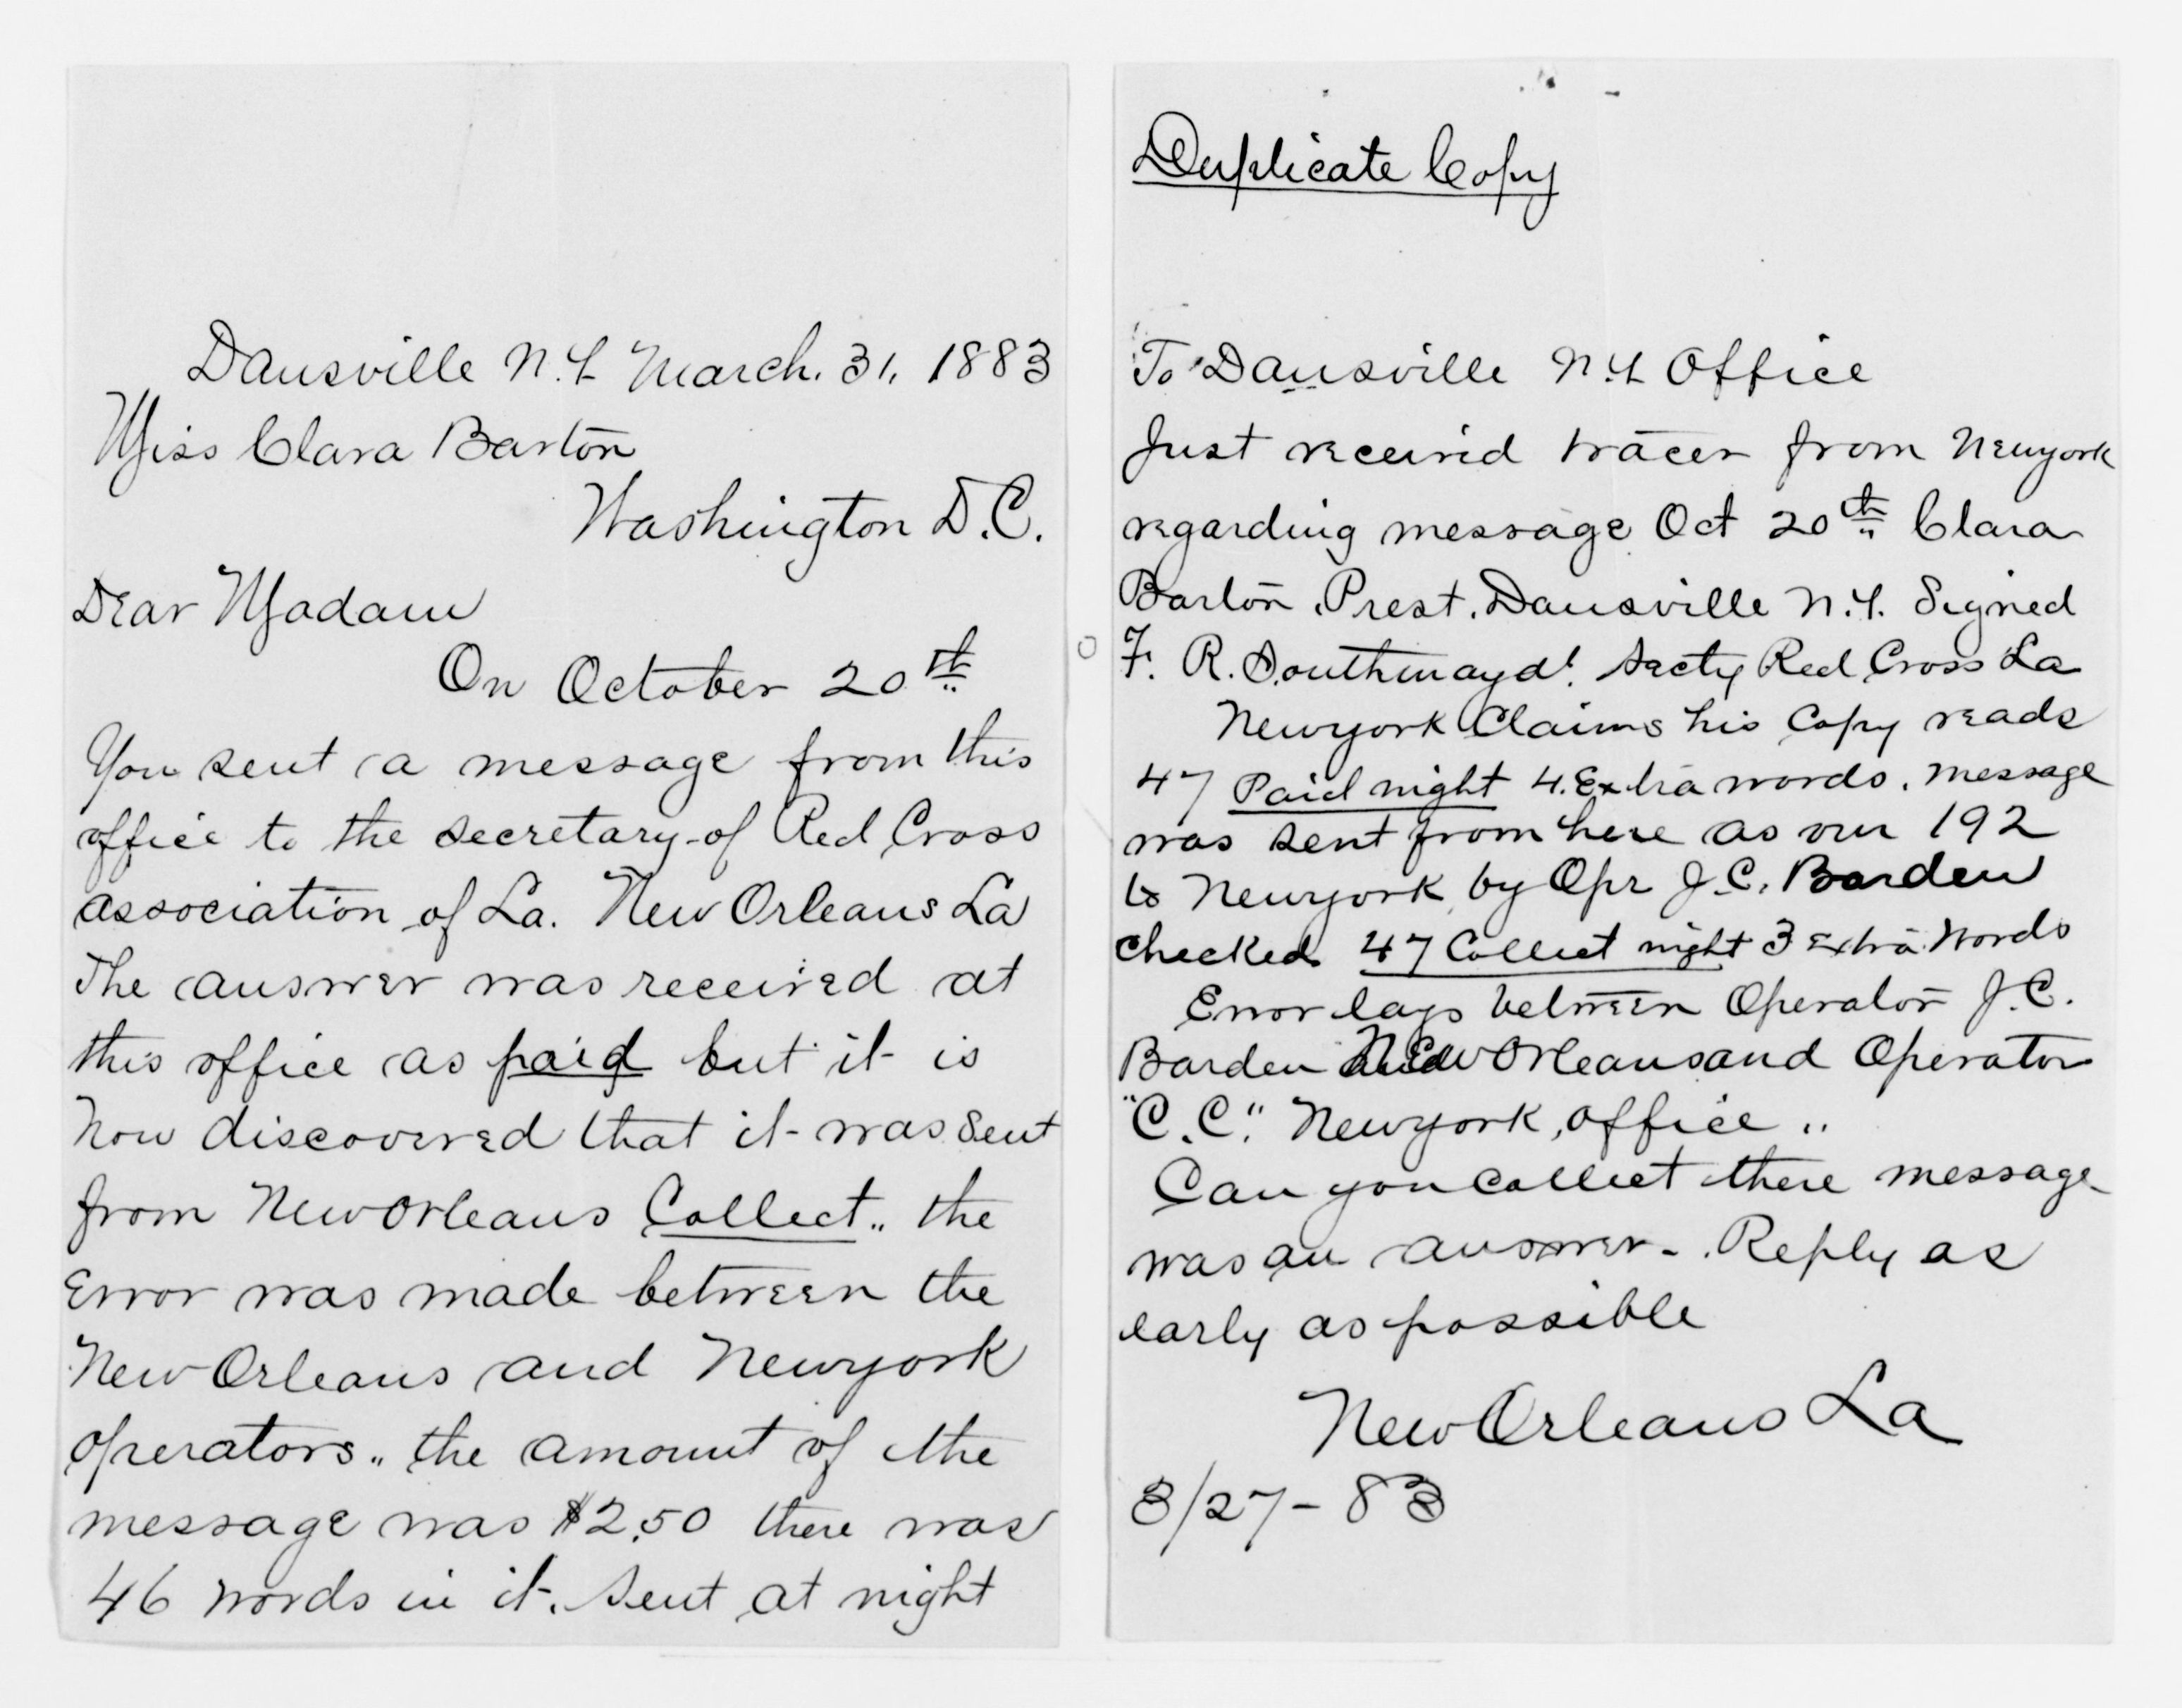 Dansville N.Y. March. 31, 1883
Miss Clara Barton
Washington D.C.
Dear Madam
On October 20th
You sent a message from this
office to the secretary of Red Cross
association of La. New Orleans La
The answer was received at
this office as paid but it is
Now discovered that it was sent
from New Orleans Collect.. the
Error was made between the
New Orleans and Newyork
operators.. the amount of the
message was $2.50 there was
46 words in it. Sent at night
Duplicate Copy
To Dansville N.Y. Office
Just received tracer from Newyork
regarding message Oct 20th Clara
Barton. Prest. Dansville N.Y. Signed
F. R. Southmayd. Secty Red Cross La
Newyork Claims his Copy reads
47 Paid night 4. Extra words. message
was sent from here as our 192
to Newyork by Opr J.C. Barden
checked 47 Collect night 3 Extra Words
Error lays between Operator J.C.
Barden New Orleans and Operator
"C.C." Newyork, office ..
Can you collect there message
was an answer - . Reply as
early as possible
New Orleans La
3/27-83